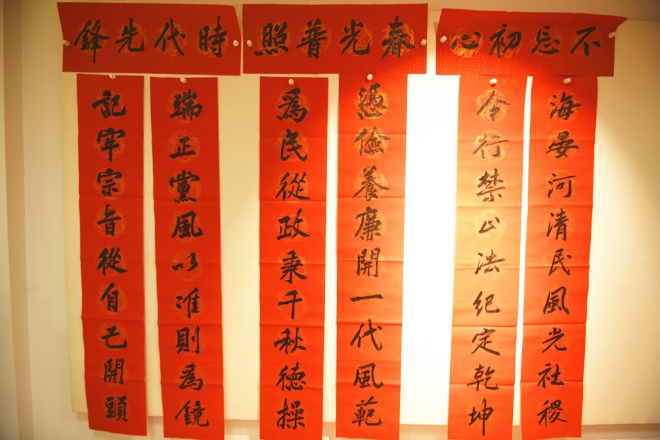 不忘初心
海晏河清民風光社稷
令行禁止法紀定乾坤
春光普照
憑儉養廉開一代風範
為民從政秉千秋德操
時代先鋒
瑞正黨風以准則為鏡
記牢宗旨從自己開頭